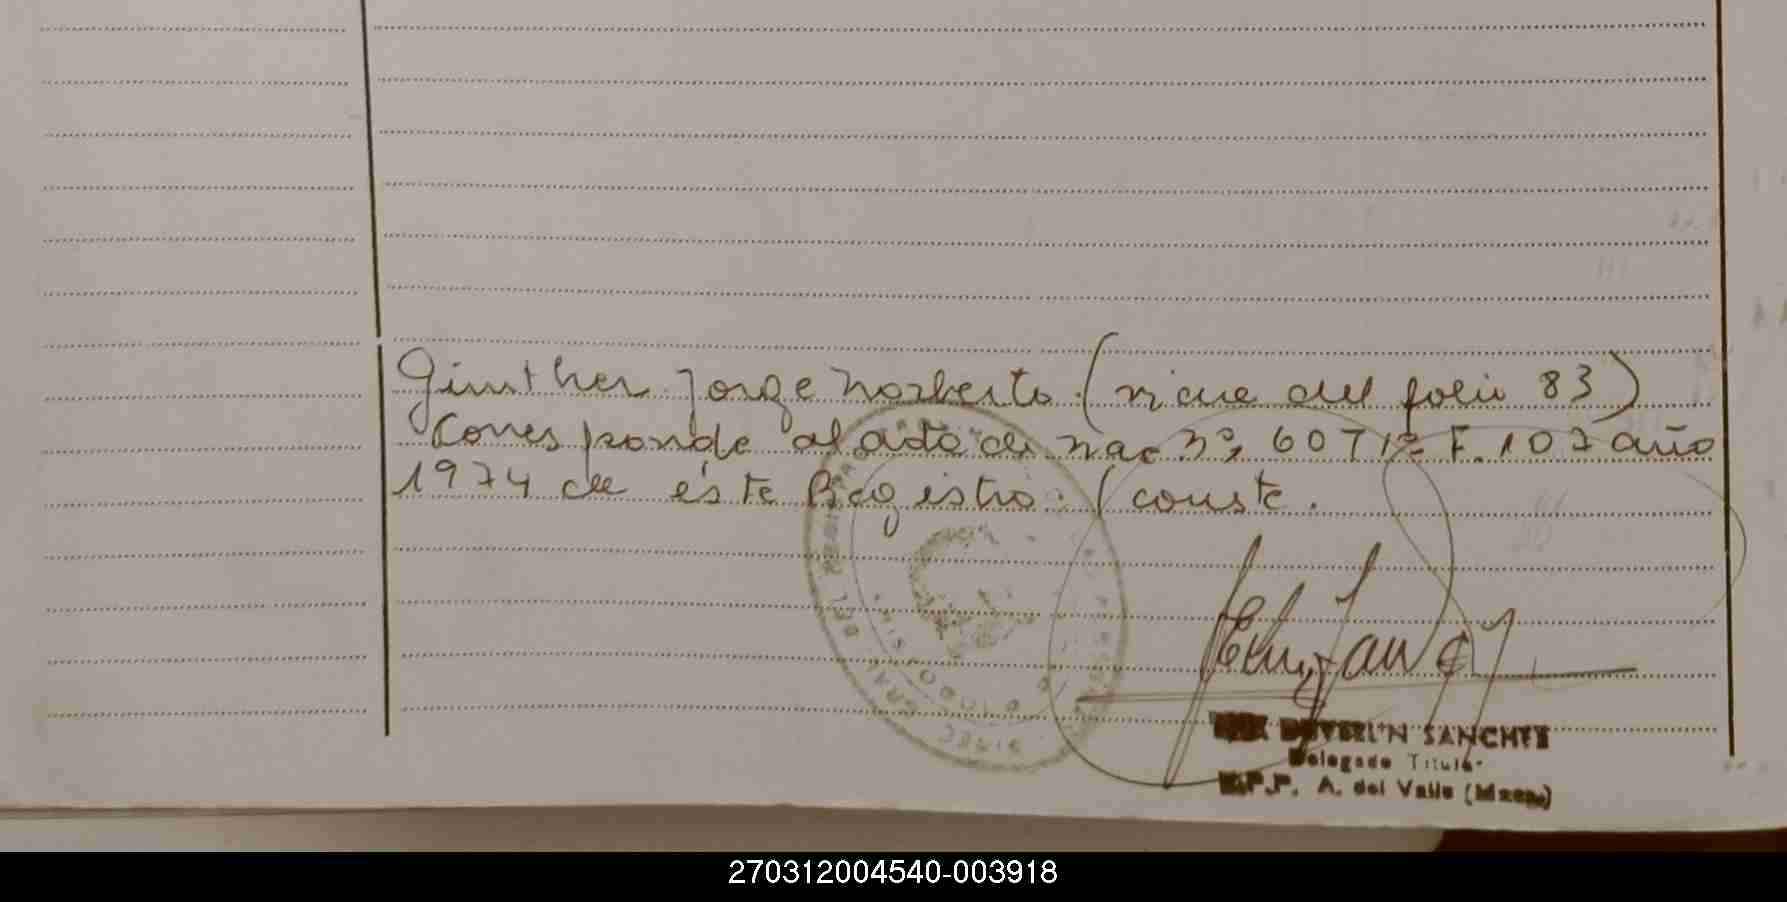 Ginther Jorge Norberto. (viene del folio 83)
Corresponde al acta de nac nº 607 Tº F. 107 año
1974 de éste Registro. (conste.
SANCHEZ
Delegado Titular
A. del Valle (Mzana)
270312004540-003918